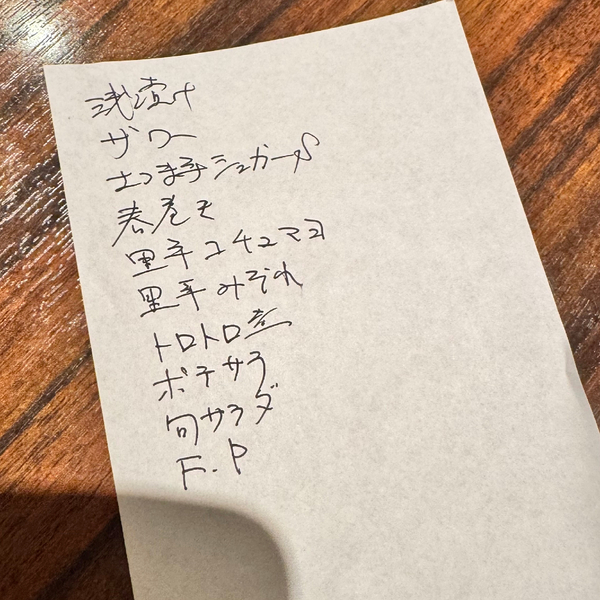 浅漬け
サワー
さつま芋シュガーS
春巻き
里芋ユチュマヨ
里芋みぞれ
トロトロ煮
ポテサラ
旬サラダ
F.P